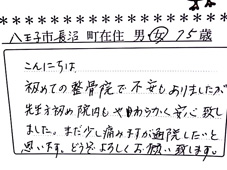 * * * * * * * * * * * * * * * * * * * *
八王子市長沼 町在住 男 女 75歳
こんにちは、
初めての整骨院で不安もありましたが
先生初め院内もやわらかく安心致し
ました。まだ少し痛みますが通院したいと
思います。どうぞよろしくお願い致します。